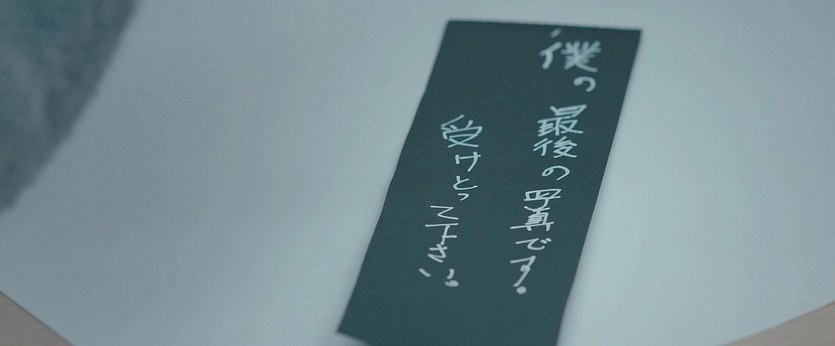 僕の最後の写真です。
受けとって下さい。